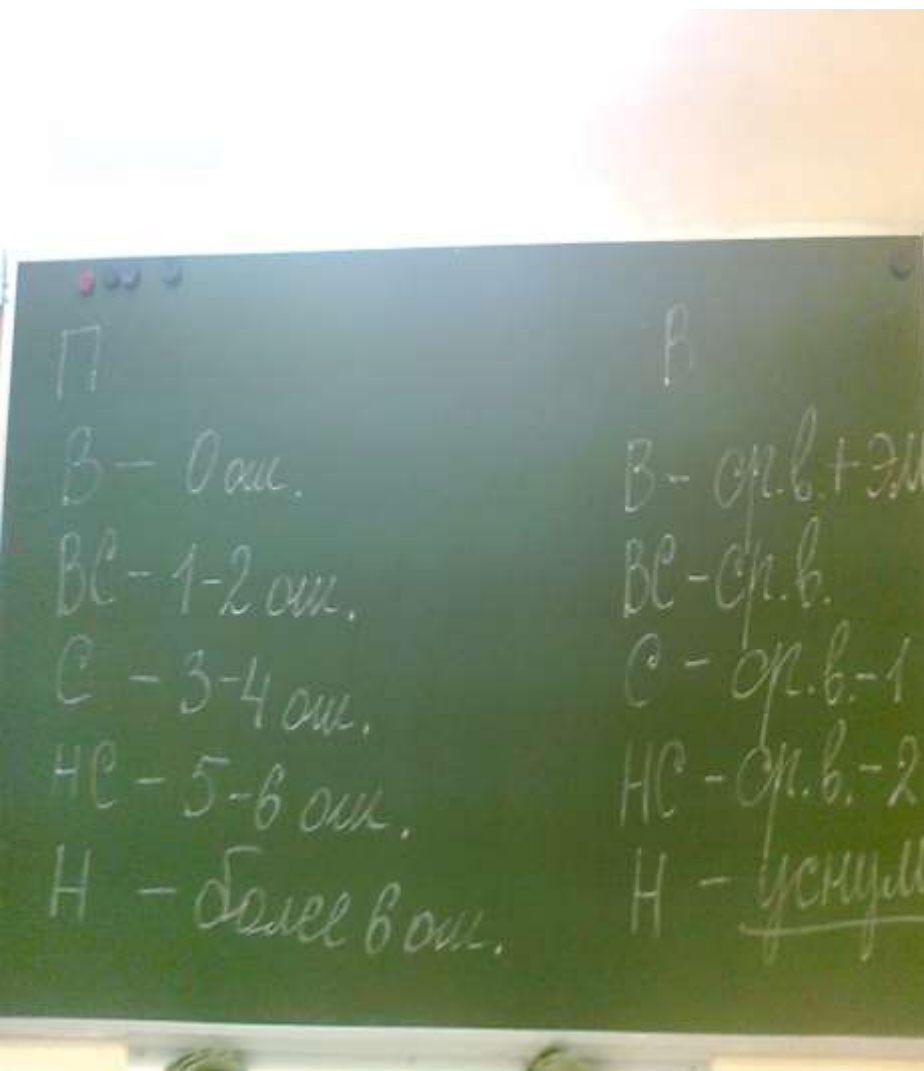 П
В – 0 ош.
ВС – 1-2 ош.
С – 3-4 ош.
НС – 5-6 ош.
Н – более 6 ош.
В
В – ср.в.+эм
ВС – ср.в.
С – ср.в.-1
НС – ср.в.-2
Н – уснул